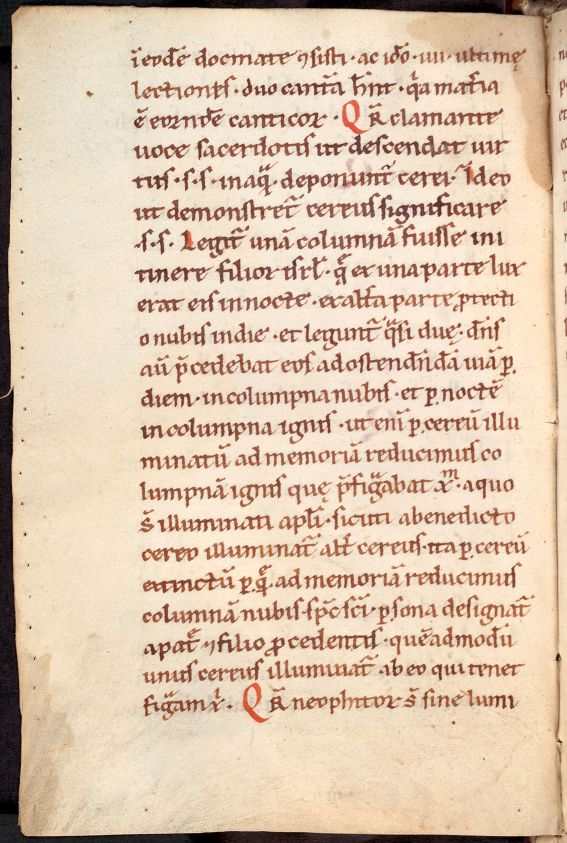 ī eodē docmate ꝯsisti · ac iđo · uii · ultimę
lectiones · duo cantā hn̄t · q̄a mat̄ia
ē eorūdē canticoꝝ · Qn̄ clamante
uoce sacerdotis ut descendat uir
tus · s · s · in aq̄ · deponunt̄ cerei · Ideo
ut demonstret̄ cereus significare
· s · s · Legit̄ unā columnā fuisse in i
tinere filioꝝ isrl̄ · q̄ ex una parte lux
erat eis in nocte · ex alt̄a parte ꝓtecti
o nubis in die · et legunt̄ q̄si duę · dn̄s
aū p̄cedebat eos ad ostendēdā uiā ꝑ
diem · in columpna nubis · et ꝑ noctē
in columpna ignis · ut eni ꝑ cereū illu
minatū ad memoriā reducimus co
lumpnā ignis quę p̄figābat xᵐ · a quo
s̄ illuminati apl̄i · sicuti a benedicto
cereo illuminat̄ alt̄ cereus · ita ꝑ cereū
extinctū ꝑ q̄ · ad memoriā reducimus
columnā nubis · sp̄c sc̄i · ꝑsona designat̄
a pat̄ ⁊ filio ꝓcedentis · quēadmodū
unus cereus illuminat̄ ab eo qui tenet
figām x̄ · Qn̄ neophitoꝝ s̄ sine lumi